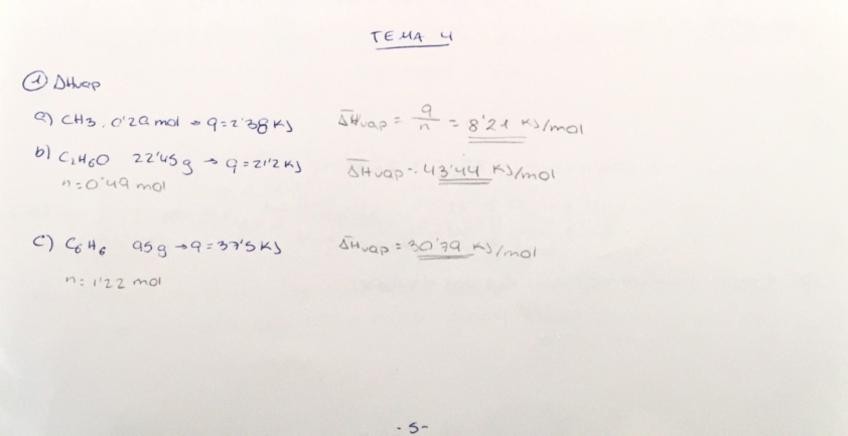 TEMA 4
① ΔHvap
a) CH3. 0'29 mol → q=2'38 KJ ΔH̅vap = q/n = 8'21 KJ/mol
b) C₂H6O 22'45g → q=21'2 KJ ΔH̅vap = 43'44 KJ/mol
n=0'49 mol
c) C6H6 95g → q=37'5 KJ ΔH̅vap = 30'79 KJ/mol
n= 1'22 mol
-5-